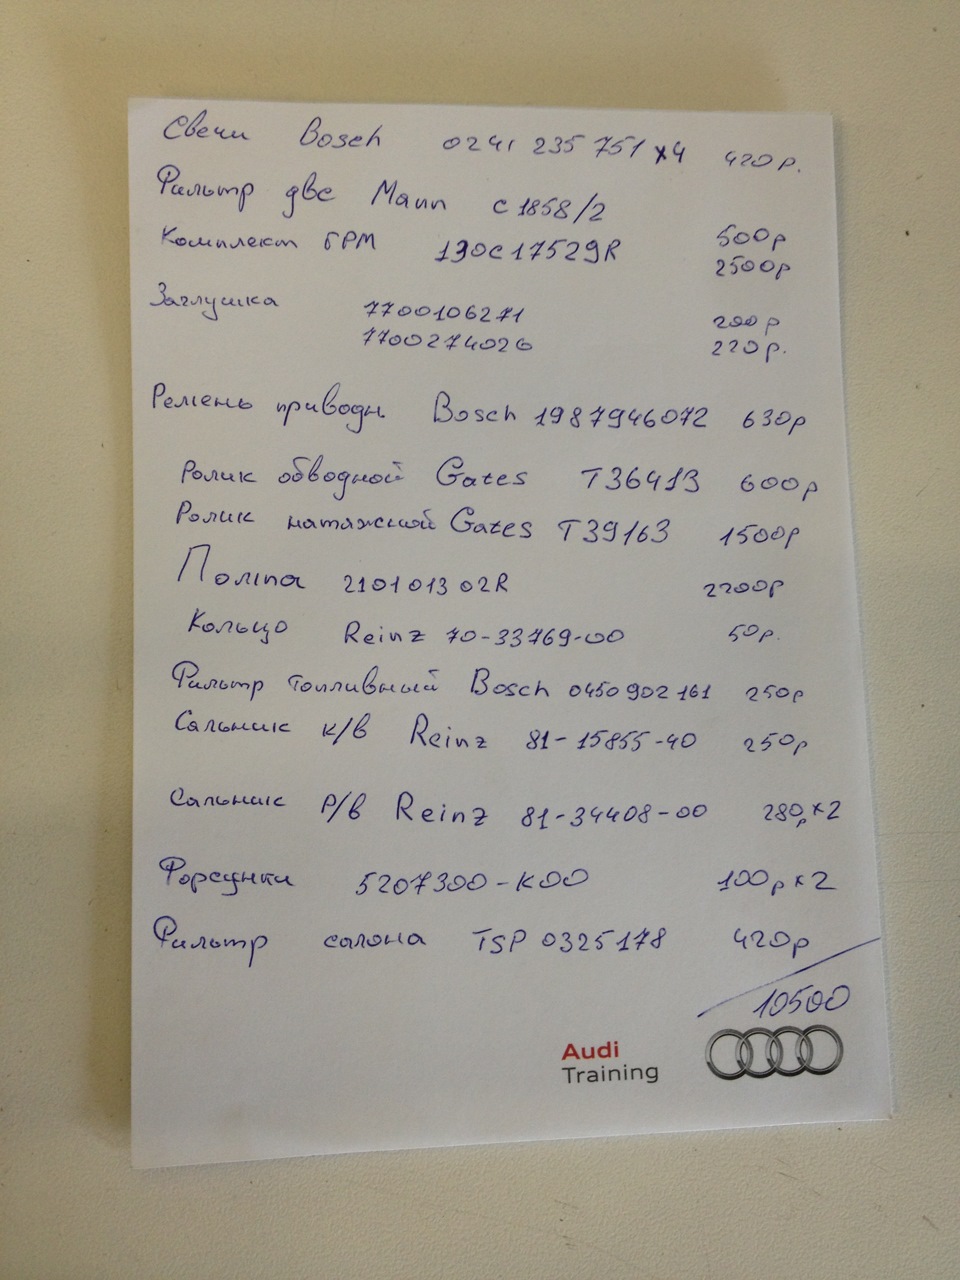 Свечи Bosch 0241 235 751 x4 420р.
Фильтр двс Mann c 1858/2 500р
Комплект ГРМ 130C17529R 2500р
Заглушка 7700106271 200р
7700274026 220р.
Ремень приводн Bosch 1987946072 630р
Ролик обводной Gates T36413 600р
Ролик натяжной Gates T39163 1500р
Помпа 210101302R 2200р
Кольцо Reinz 70-33769-00 50р.
Фильтр топливный Bosch 0450902161 250р
Сальник к/в Reinz 81-15855-40 250р
Сальник Р/в Reinz 81-34408-00 280р x2
Форсунки 5207300-K00 100р x2
Фильтр салона TSP 0325178 420р
10500
Audi
Training